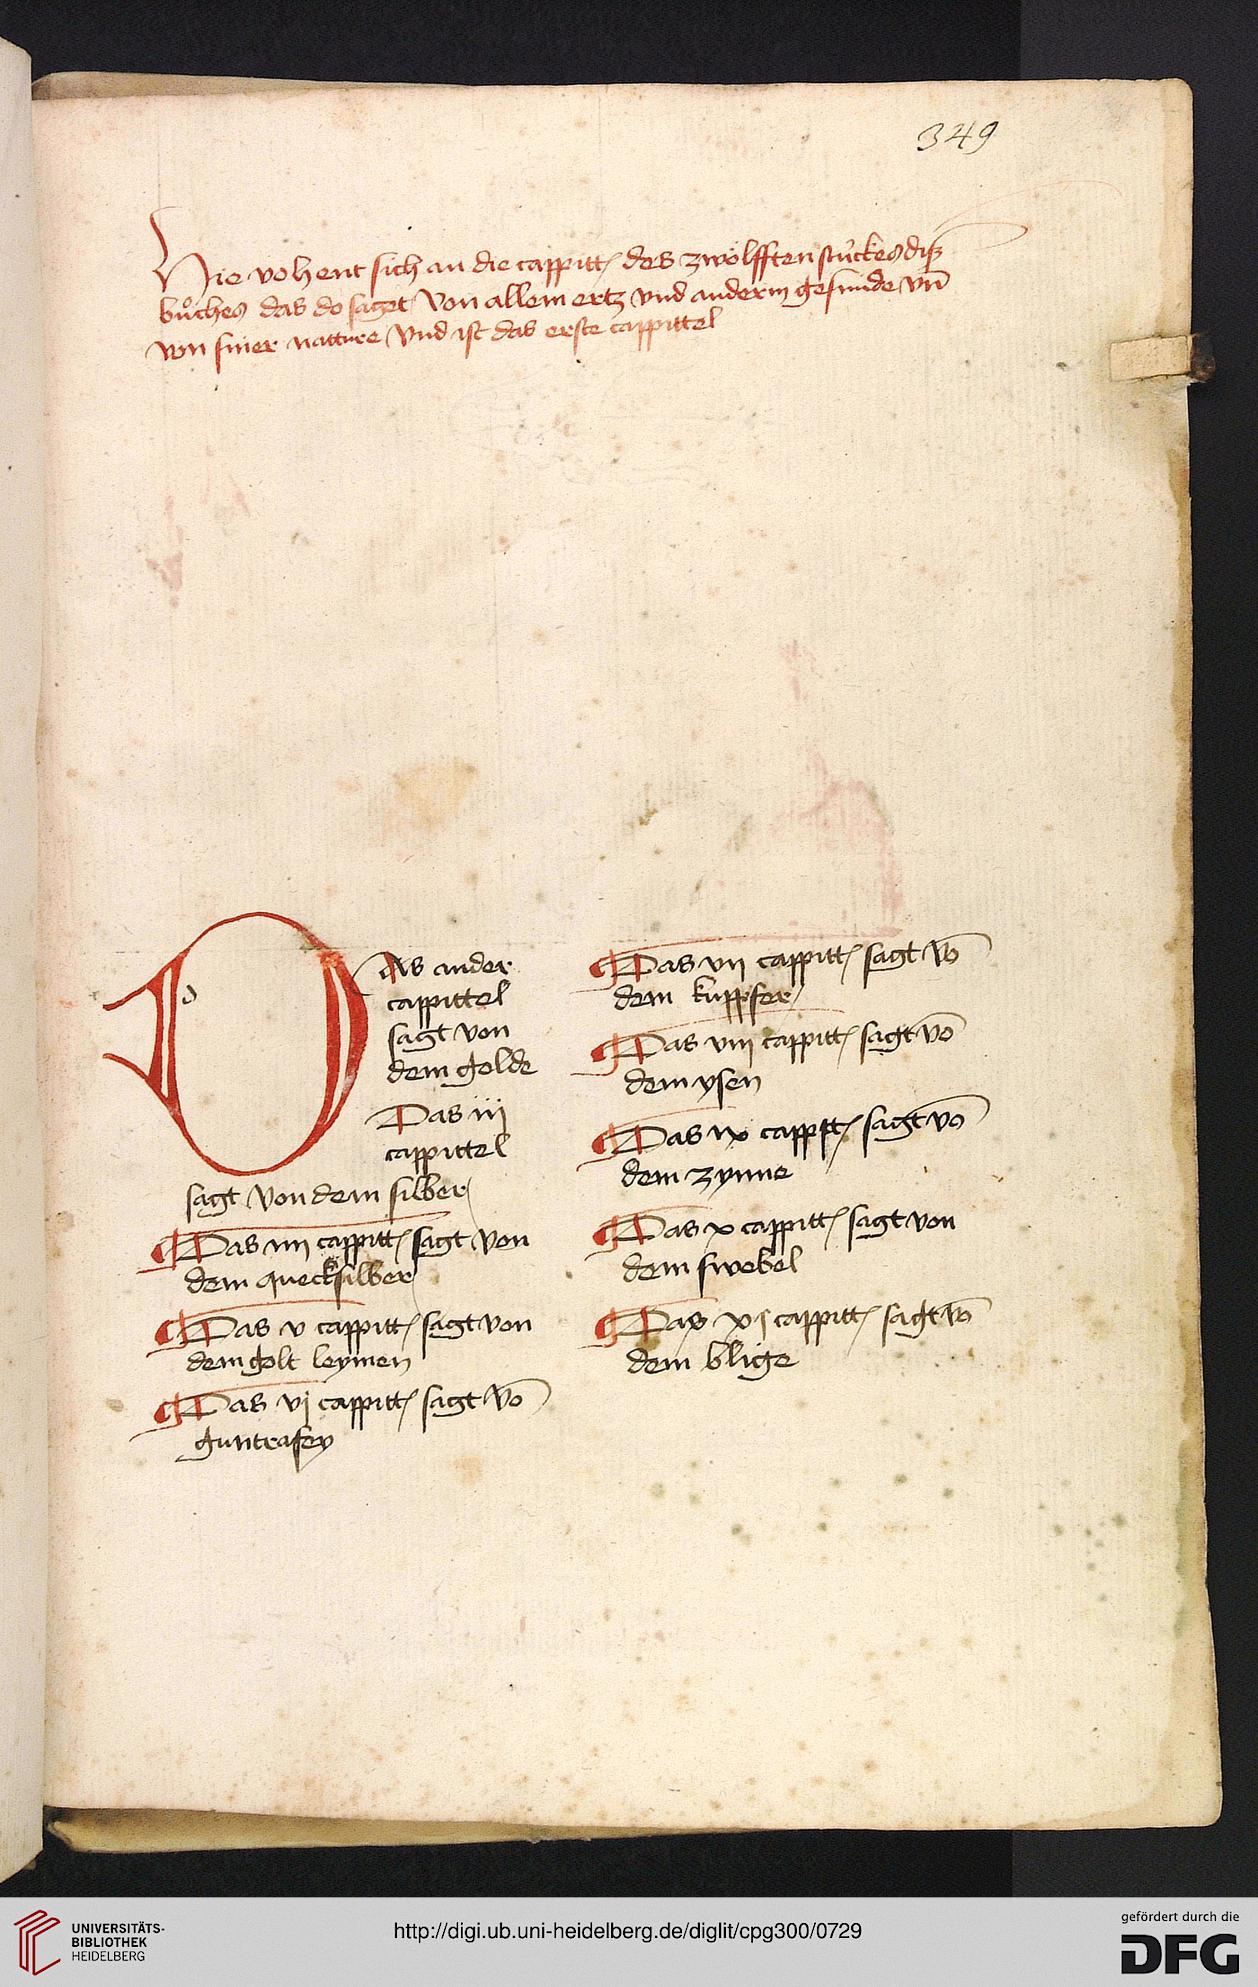 349
Hie vohent sich an die cappitt des zwölfften stückes diß
bůches das do saget Von allem ertz vnd anderm gesmide vn̄
von siner natture Vnd ist das erste cappittel
DAs ander
cappittel
sagt von
dem golde
Das iij
cappittel
sagt Von dem silber
Das iiij cappitt sagt Von
dem quecksilber
Das v cappitt sagt von
dem golt leymen
Das vj cappitt sagt Vō
guntrafey
Das vij cappitt sagt Vō
dem kuppfer
Das viij cappitt sagt vō
dem ysen
Das ix cappitt sagt vō
dem zynne
Das x cappitt sagt von
dem swebel
Das xj cappitt sagt Vō
dem blige
UNIVERSITÄTS-
BIBLIOTHEK
HEIDELBERG
http://digi.ub.uni-heidelberg.de/diglit/cpg300/0729
gefördert durch die
DFG